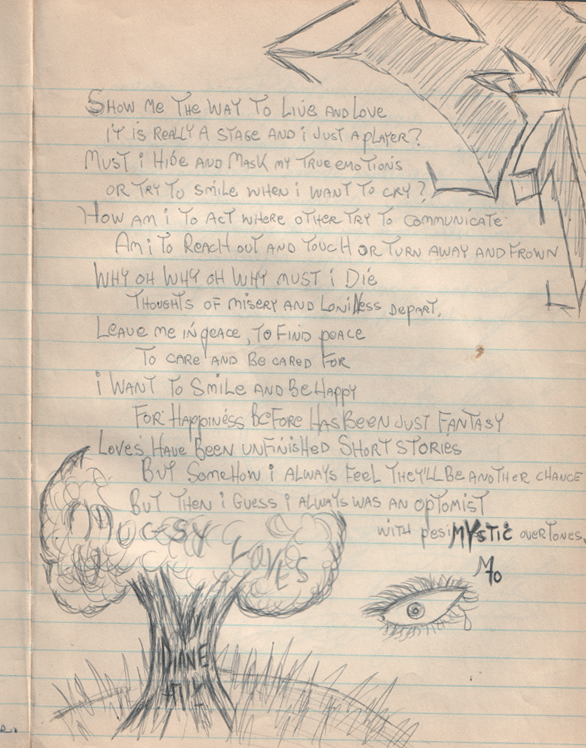 Show me the way to Live and Love
it is really a stage and i just a player?
Must i Hide and Mask my true emotions
or try to smile when i want to cry?
How am i to act where other try to communicate
Am i to Reach out and touch or turn away and frown
Why oh why oh why must i Die
Thoughts of misery and Loniless depart.
Leave me in peace, to find peace
To care and be cared for
i want to Smile and Be Happy
For Happiness before has been just fantasy
Loves Have been unfinished Short stories
But Somehow i always feel they'll be another chance
But then i guess i always was an optomist
with pesiMystic overtones.
Mo
Loves
Diane
R.